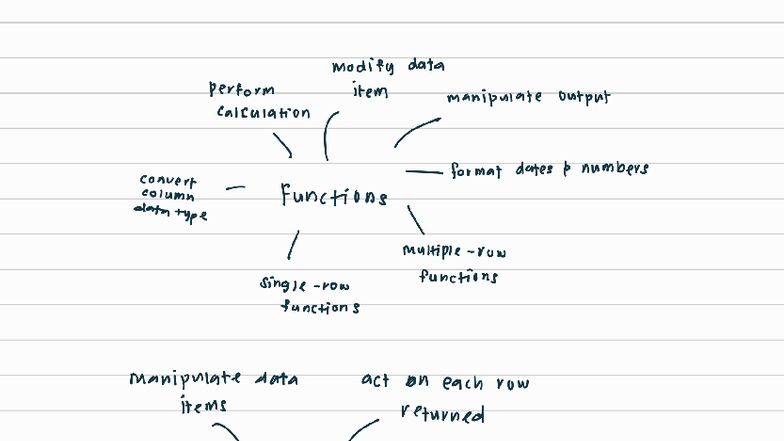 modify data
item
perform
calculation
manipulate output
format dates & numbers
convert
column
data type
Functions
multiple-row
functions
single-row
functions
manipulate data
items
act on each row
returned